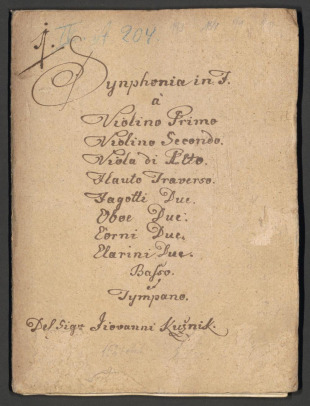 j.
IV A 204
Synphonia in F.
à
Violino Primo
Violino Secondo.
Viola di Alto.
Flauto Traverso.
Fagotti Due.
Oboe Due.
Corni Due.
Clarini Due.
Basso.
et
Tympano.
Del Sigr Jiovanni Kužnik.